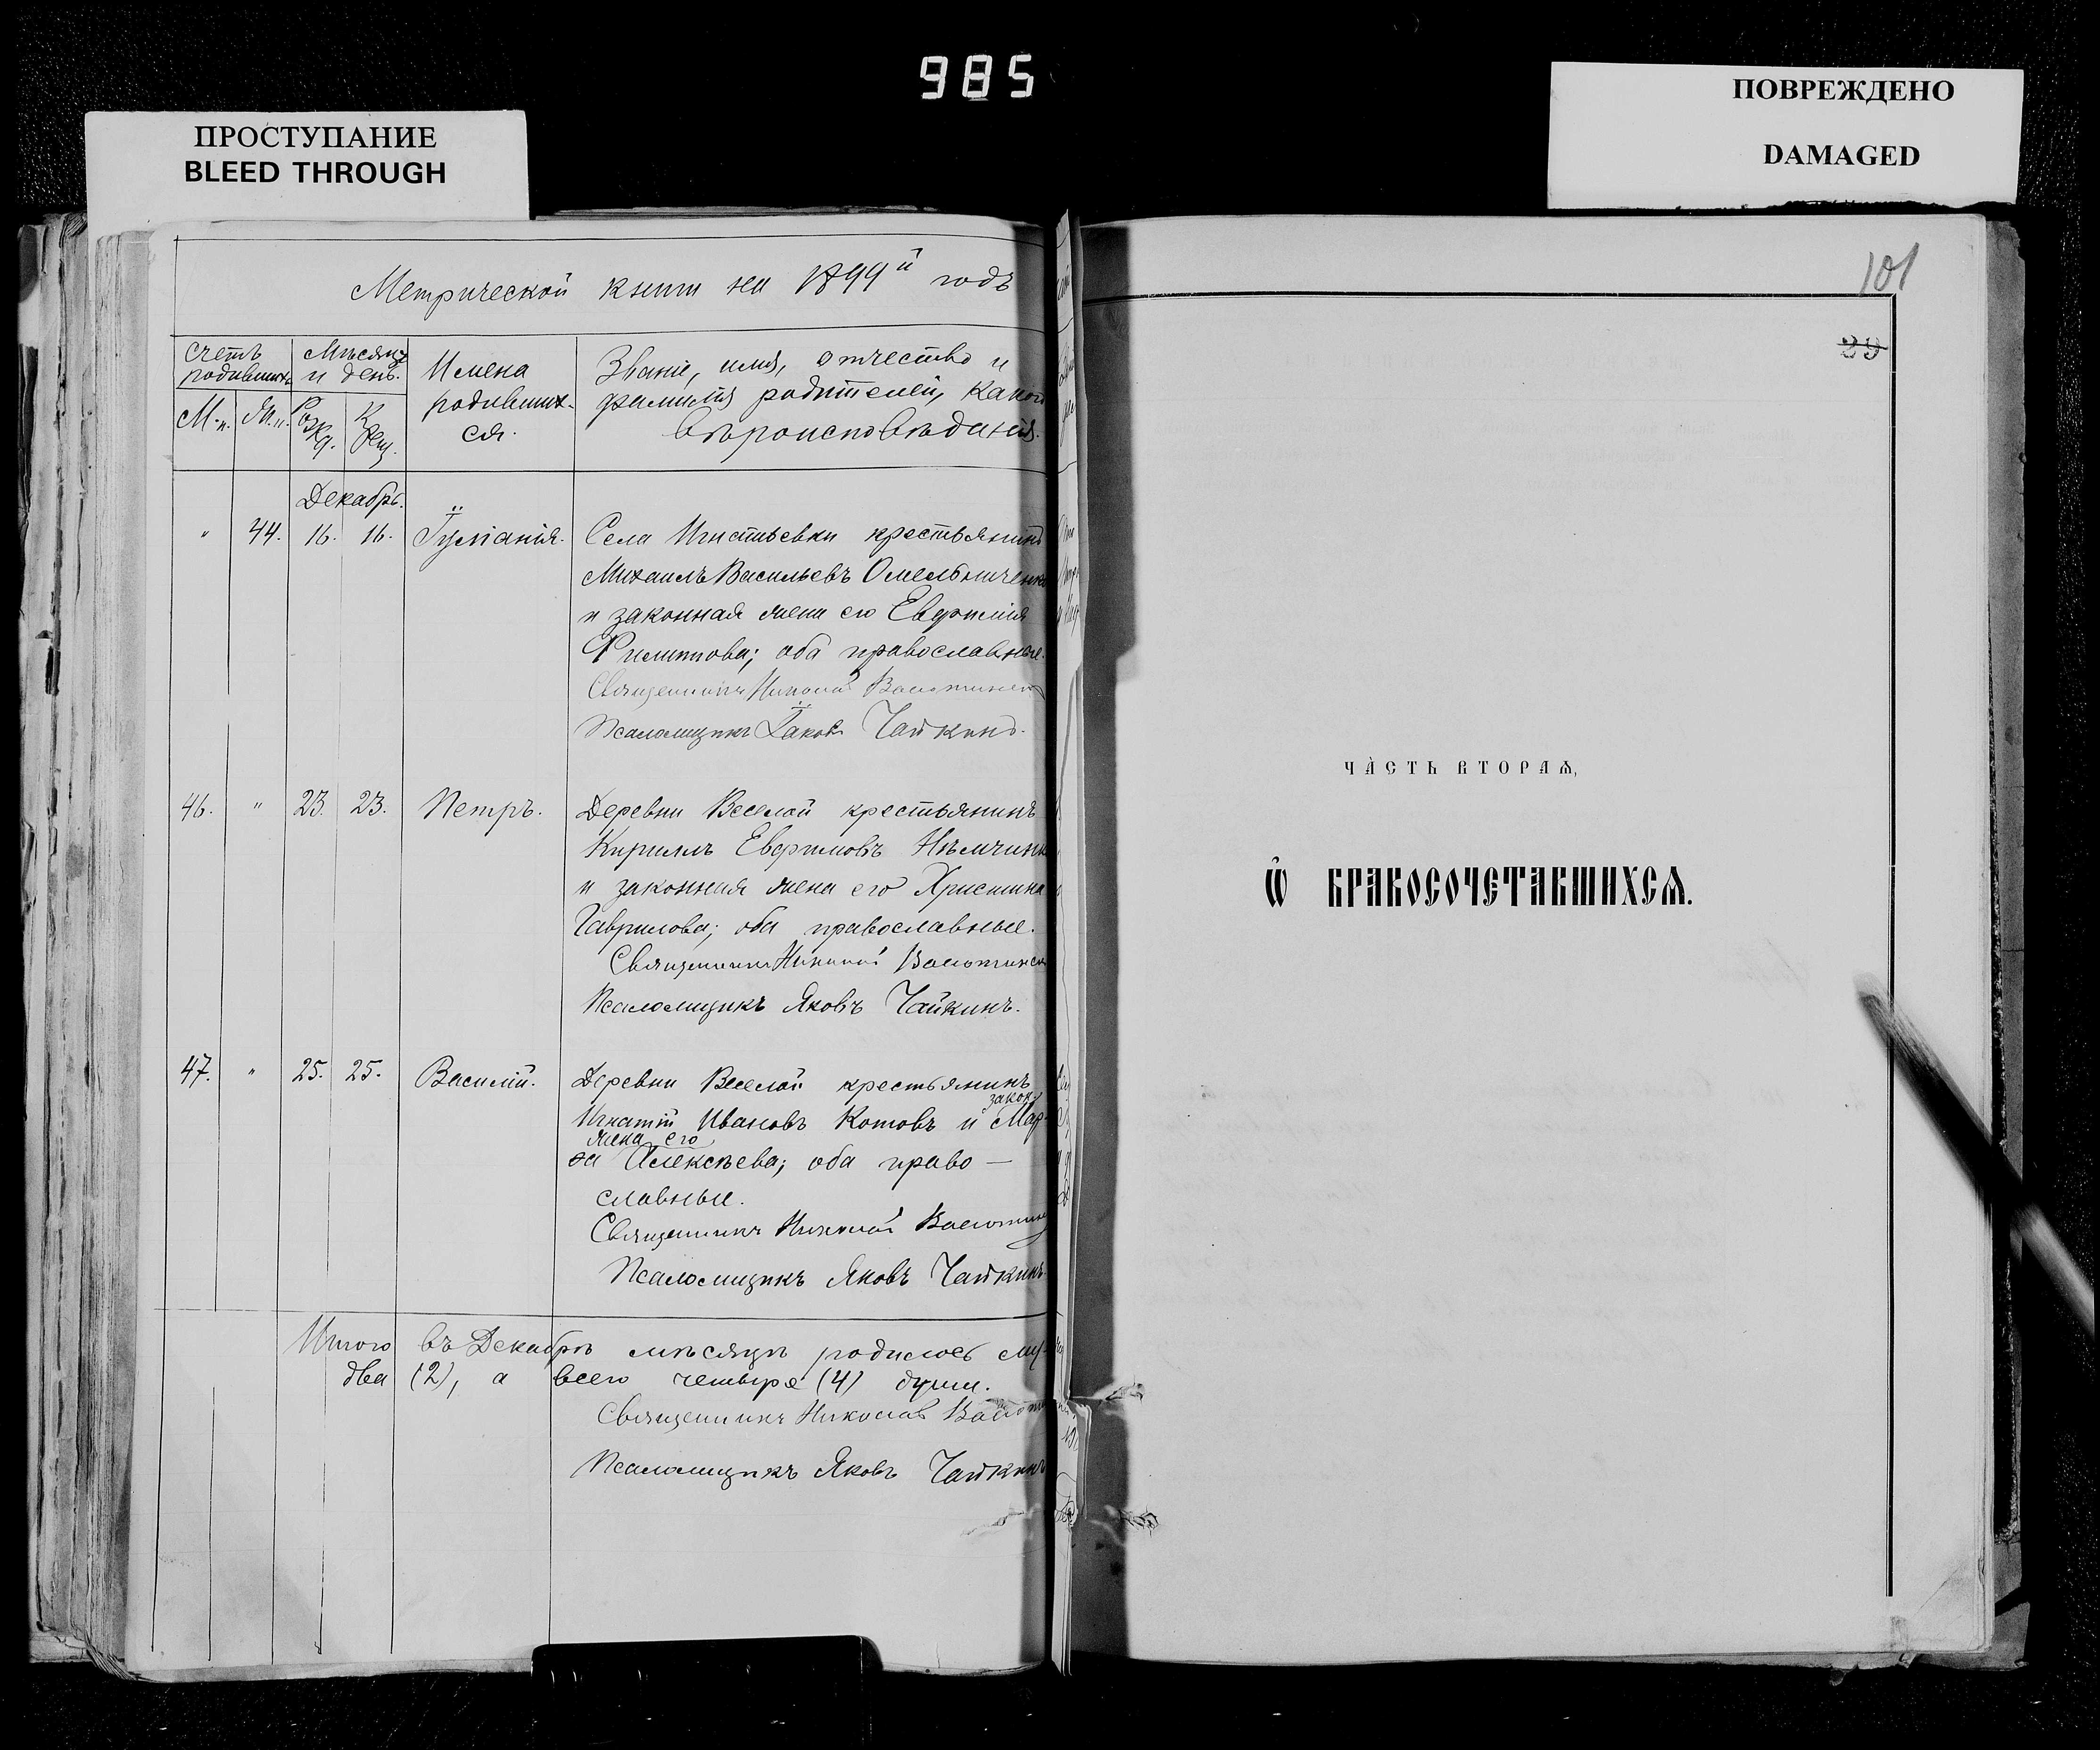 985
ПРОСТУПАНИЕ
BLEED THROUGH
ПОВРЕЖДЕНО
DAMAGED
Метрической книги на 1899й годъ
Счетъ родившихъ
Мѣсяцъ и день.
Имена родивших-ся.
Званіе, имя, отчество и
фамилія родителей, какого
вѣроисповѣданія.
М. п. Ж. п. Рожд. Крещ.
Декабрь.
" 44. 16. 16. Іуліанія. Села Игнатьевки крестьянинъ
Михаилъ Васильевъ Омельниченко
и законная жена его Евфимія
Филиппова; оба православные.
Священникъ Николай
Псаломщикъ Іаковъ Чайкинъ.
46. " 23. 23. Петръ. Деревни Веселой крестьянинъ
Кириллъ Евфимовъ
и законная жена его Христина
Гаврилова; оба православные.
Священникъ Николай
Псаломщикъ Яковъ Чайкинъ.
47. " 25. 25. Василій. Деревни Веселой крестьянинъ
закон.
Игнатій Ивановъ Котовъ и Мар-
жена его
ѳа Алексѣева; оба право—
славные.
Священникъ Николай
Псаломщикъ Яковъ Чайкинъ
Итого въ Декабрѣ мѣсяцѣ родилось му-
два (2), а всего четыре (4) души.
Священникъ Николай
Псаломщикъ Яковъ Чайкинъ
101
29
ЧА́СТЬ ВТОРАѦ,
Ѽ БРАКОСОЧЕТАВШИХСѦ.